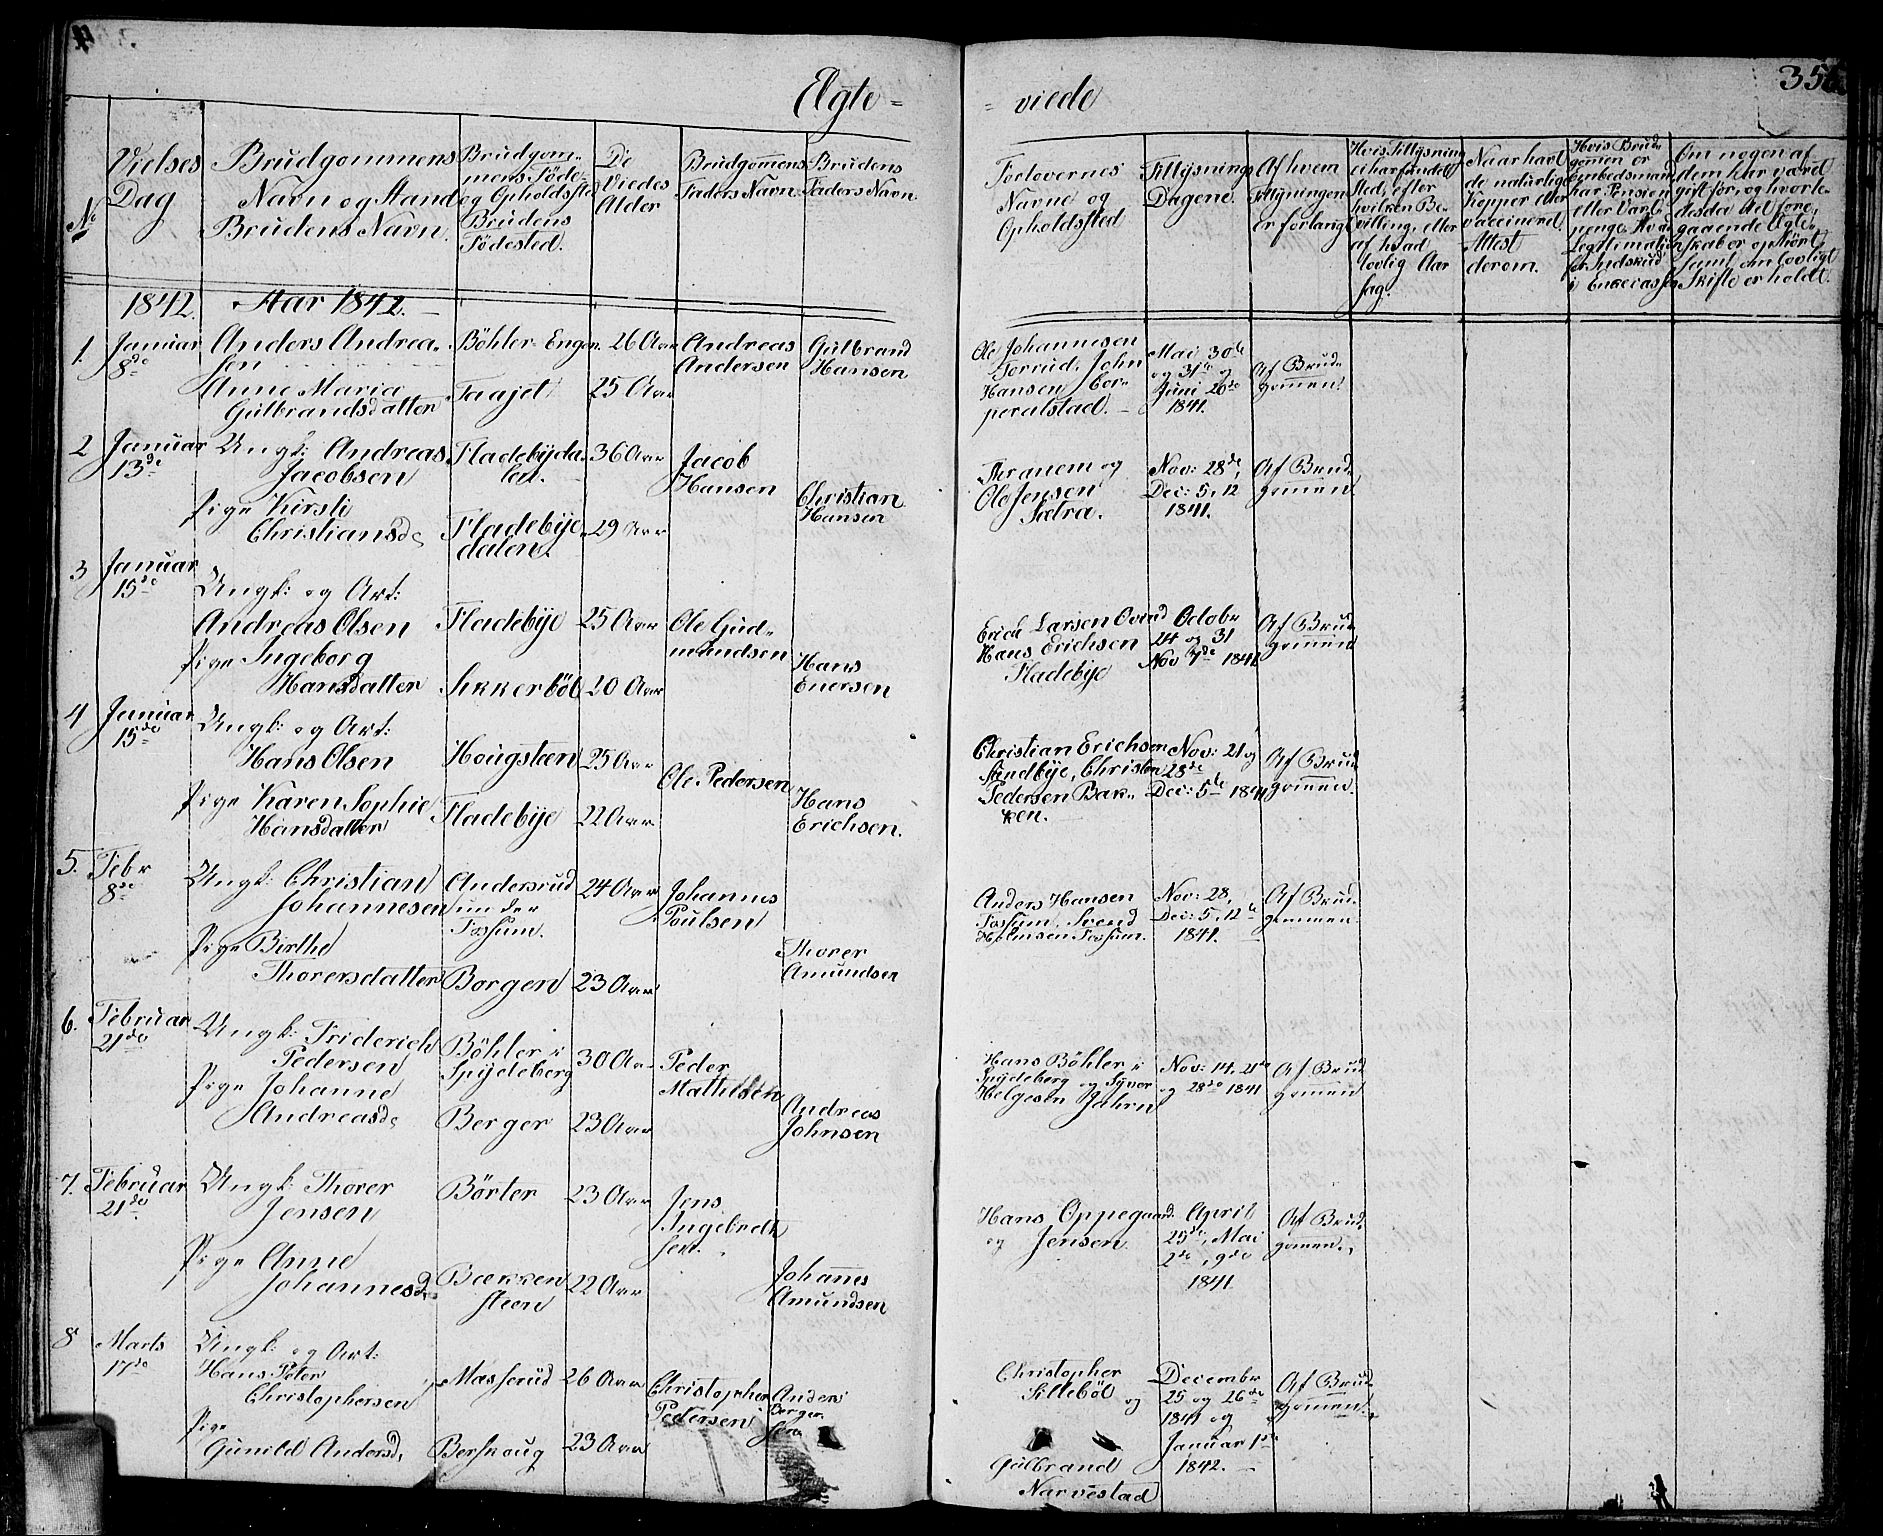 Ægte=
= viede
355
No
Vielses Dag
Brudgommens Navn og Stand Brudens Navn.
Brudgommens Föde- og Opholdsted Brudens Födested.
De Viedes Alder
Brudgomens Faders Navn.
Brudens Faders Navn
Forlovernes Navne og Opholdsted
Tillysnings Dagene.
Af hvem Tillysningen er forlangt
Hvis Tillysning ei har fundet Sted, efter hvilken Bevilling, eller af hvad lovlig Aarsag.
Naar havt de naturlige Kopper eller vaccineret. Attest derom.
Hvis Brudgomen er Embedsmand, har Pension eller Vartpenge, Hvor Legitimation for Indskud i Enkecassen
Om nogen af dem har været gift för, og hvorledes da det foregaaende Ægteskab er ophört, samt om lovligt Skifte er holdt.
1842. Aar 1842.
1. Januar 8de
Anders Andreasen
Böhler-Engen. 26 Aar
Andreas Andersen
Anne Maria Gulbrandsdatter
Taajet 25 Aar
Gulbrand Hansen
Ole Johannesen Sorrud, John Hansen Corperalstad.
Mai 30te og 31te og Juni 20de 1841.
Af Brudgommen
2 Januar 13de
Ungk: Andreas Jacobsen
Fladebydalen. 36 Aar
Jacob Hansen
Pige Kirsti Christiansd.
Fladebyedalen. 29 Aar
Christian Hansen
Thranem og Ole Jensen Sætra.
Nov: 28de, Dec: 5, 12 1841.
Af Brudgommen
3 Januar 15de
Ungk: og Art: Andreas Olsen
Fladebye 25 Aar
Ole Gudmundsen
Pige Ingeborg Hansdatter
Sikkerböl 20 Aar
Hans Enersen
Erich Larsen Overud Hans Erichsen Fladebye
Octobr 24 og 31 Nov 7de 1841
Af Brudgommen
4 Januar 15de
Ungk: og Art: Hans Olsen
Hougsteen 25 Aar
Ole Pedersen
Pige Karen Sophie Hansdatter
Fladebye 22 Aar
Hans Erichsen.
Christian Erichsen Sandbye, Christen Pedersen Bakken.
Nov: 21 og 28de Dec: 5te 1841
Af Brudgommen.
5. Febr 8de
Ungk: Christian Johannesen
Andersrud under Fossum. 24 Aar
Johannes Poulsen
Pige Birthe Thorersdatter
Borgen 23 Aar
Thorer Amundsen
Anders Hansen Fossum, Svend Holmsen Fossum.
Nov: 28, Dec: 5, 12te 1841.
Af Brudgommen.
6. Februar 21de
Ungk: Friderich Pedersen
Böhler i Spydeberg 30 Aar
Peder Mathisen
Pige Johanne Andreasd.
Berger 23 Aar
Andreas Johnsen
Hans Böhler i Spydeberg og Syver Helgesen Jahrn
Nov: 14, 21de og 28de 1841
Af Brudgommen
7. Februar 21de
Ungk: Thorer Jensen
Börter 23 Aar
Jens Ingebretsen.
Pige Anne Johannesd.
Bækkensteen 22 Aar
Johannes Amundsen
Hans Oppegaard og Jensen.
April 25de, Mai 2de, 9de 1841.
Af Brudgommen.
8 Marts 17de
Ungk: og Art: Hans Peter Christophersen
Masserud 26 Aar
Christopher Pedersen
Pige Gunild Andersd.
Berskoug 23 Aar
Anders Bergersen
Christopher Silleböl og Gulbrand Narvestad
Decembr 25 og 26de 1841 og Januar 1ste 1842.
Af Brudgommen.